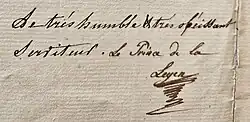 Le très humble & très obéissant
Serviteur. Le Prince de la
Leyen